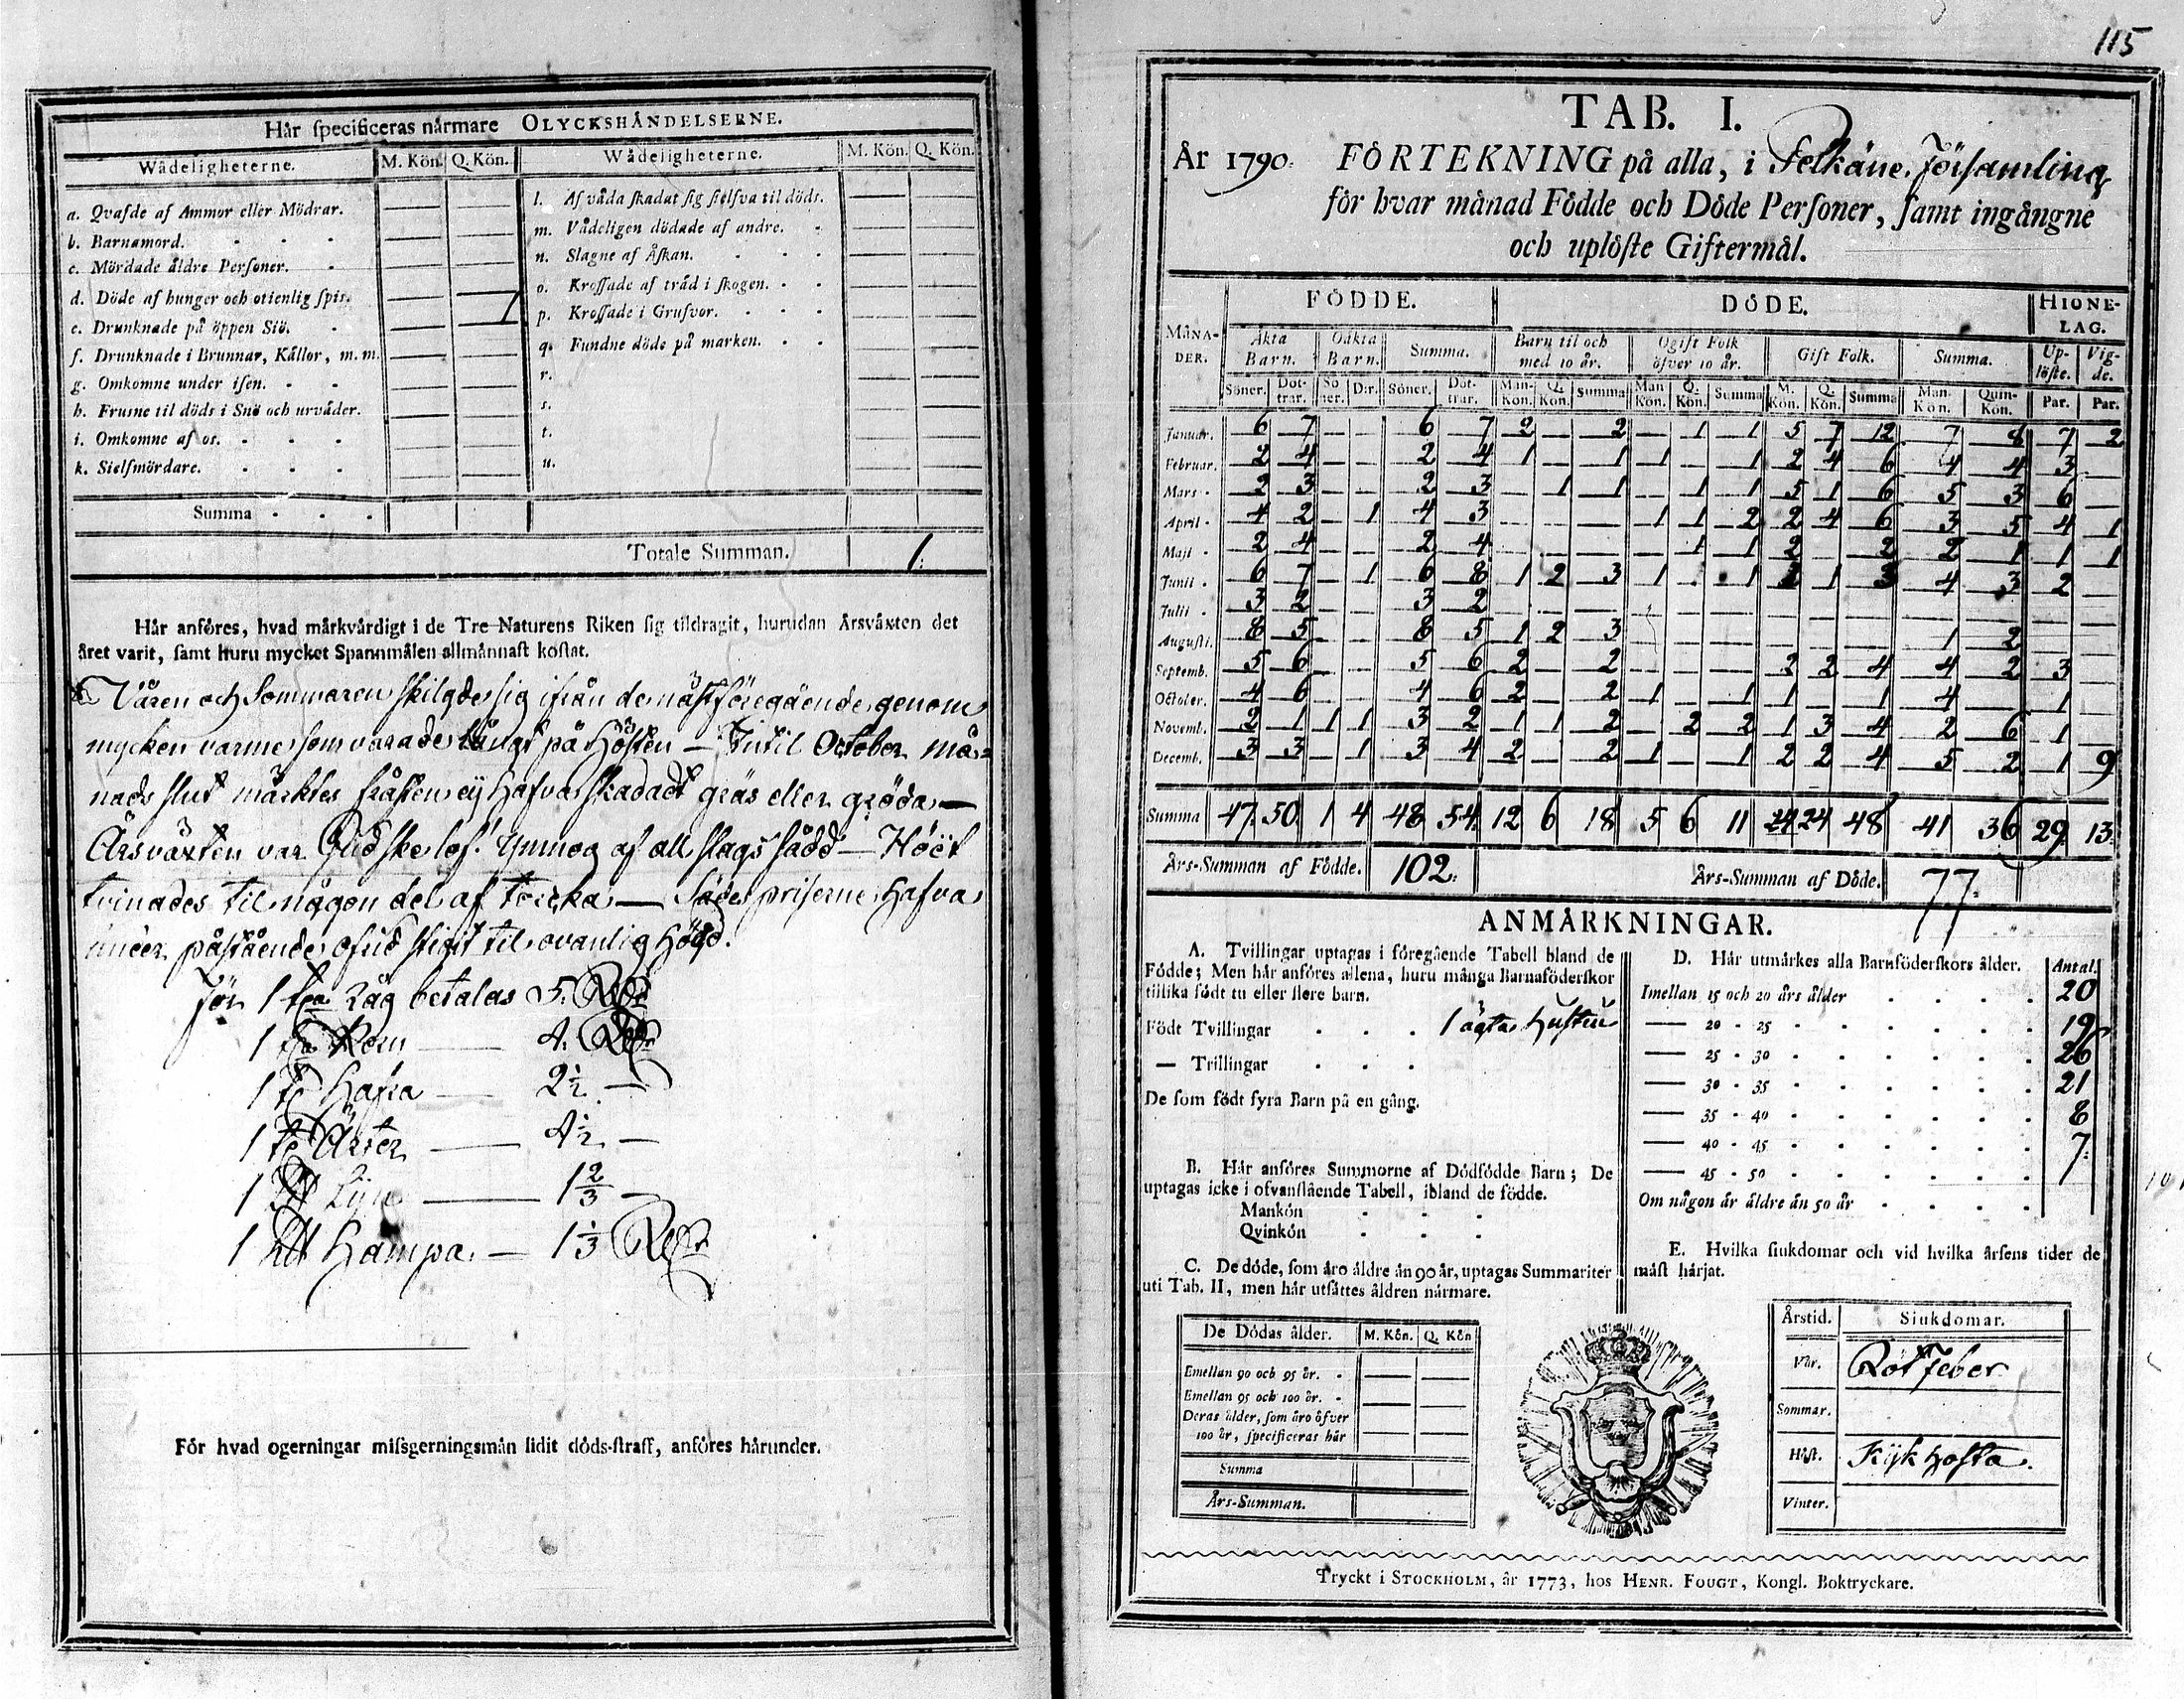 Hår specificeras nårmare OLYCKSHÅNDELSERNE.
Wådeligheterne. M. Kön. Q. Kön. Wådeligheterne. M. Kön. Q. Kön.
a. Qvafde af Ammor eller Mödrar. — —
b. Barnamord. — —
c. Mördade åldre Personer. — —
d. Döde af hunger och otienlig spis. — —
e. Drunknade på öppen Siö. — 1
f. Drunknade i Brunnar, Kållor, m. m. — —
g. Omkomne under isen. — —
h. Frusne til döds i Snö och urvåder. — —
i. Omkomne af os. — —
k. Sielfmördare. — —
l. Af våda skadat sig sielfva til döds. — —
m. Vådeligen dödade af andre. — —
n. Slagne af Åskan. — —
o. Krossade af tråd i skogen. — —
p. Krossade i Grufvor. — —
q. Fundne döde på marken. — —
r. — —
s. — —
t. — —
u. — —
Summa
Totale Summan. 1.
Hår anföres, hvad mårkvårdigt i de Tre Naturens Riken sig tildragit, hurudan Årsvåxten det
året varit, samt huru mycket Spannmålen allmånnast kostat.
Våren och Sommaren skilgde sig ifrån de nästföregående genom
mycken varme som varade långt på Hösten — Intil October må=
nads slut märktes frosten ej Hafva skadadt gräs eller gröda —
Årsväxten var Gudskelof! Ymnog af all slags sädd — Höet
tvinades til någon del af torcka — Sädes priserne Hafva
under påstående ofrid stigit til ovanlig Högd.
För 1 t:a Råg betalas 5. Rd:r
1 t:a Korn — 4. Rd:r
1 t:a Hafra — 2½ —
1 t:a Ärter — 4½ —
1 L℔ Lijn — 1⅔ —
1 L℔ Hampa — 1⅓ Rd:r
För hvad ogerningar missgerningsmån lidit döds-straff, anföres hårunder.
115
TAB. I.
År 1790. FÖRTEKNING på alla, i Felkäne Församling
för hvar månad Födde och Döde Personer, samt ingångne
och uplöste Giftermål.
FÖDDE. DÖDE. HIONE-LAG.
MÅNA-DER. Åkta Barn. Oåkta Barn. Summa. Barn til och med 10 år. Ogift Folk öfver 10 år. Gift Folk. Summa. Up-löste. Vig-de.
Söner. Döt-trar. Sö ner. D:r. Söner. Döt-trar. Man-Kön. Q. Kön. Summa Man Kön. Q. Kön. Summa M. Kön. Q. Kön. Summa Man. Kön. Quin-Kön. Par. Par.
Januar. 6 7 — — 6 7 2 — 2 — 1 1 5 7 12 7 8 7 2
Februar. 2 4 — — 2 4 1 — 1 1 — 1 2 4 6 4 4 3 —
Mars 2 3 — — 2 3 — 1 1 — 1 1 5 1 6 5 3 6 —
April 4 2 — 1 4 3 — — — 1 1 2 2 4 6 3 5 4 1
Maji 2 4 — — 2 4 — — — — 1 1 2 — 2 2 1 1 1
Junii 6 7 — 1 6 8 1 2 3 1 — 1 2 1 3 4 3 2 —
Julii 3 2 — — 3 2 — — — — — — — — — — — — —
Augusti. 8 5 — — 8 5 1 2 3 — — — — — — 1 2 — —
Septemb. 5 6 — — 5 6 2 — 2 — — — 2 2 4 4 2 3 —
October. 4 6 — — 4 6 2 — 2 1 — 1 1 — 1 4 — 1 —
Novemb. 2 1 1 1 3 2 1 1 2 — 2 2 1 3 4 2 6 1 —
Decemb. 3 3 — 1 3 4 2 — 2 1 — 1 2 2 4 5 2 1 9
Summa 47. 50. 1 4 48 54. 12 6 18 5 6 11 24 24 48 41 36 29. 13.
Års-Summan af Födde. 102. Års-Summan af Döde. 77.
ANMÅRKNINGAR.
A. Tvillingar uptagas i föregående Tabell bland de
Födde; Men hår anföres allena, huru många Barnaföderskor
tillika födt tu eller flere barn.
Födt Tvillingar 1 ägta Hustru
— Trillingar
De som födt fyra Barn på en gång.
B. Hår anföres Summorne af Dödfödde Barn; De
uptagas icke i ofvanstående Tabell, ibland de födde.
Mankön
Qvinkön
C. De döde, som åro åldre ån 90 år, uptagas Summariter
uti Tab. II, men hår utsåttes åldren nårmare.
De Dödas ålder. M. Kön. Q. Kön
Emellan 90 och 95 år. — —
Emellan 95 och 100 år. — —
Deras ålder, som åro öfver
100 år, specificeras hår — —
Summa
Års-Summan.
D. Hår utmårkes alla Barnföderskors ålder. Antal.
Imellan 15 och 20 års ålder 20
— 20 - 25 19
— 25 - 30 26
— 30 - 35 21
— 35 - 40 8
— 40 - 45 7.
— 45 - 50
Om någon år åldre ån 50 år
E. Hvilka siukdomar och vid hvilka årsens tider de
måst hårjat.
Årstid. Siukdomar.
Vår. Röt Feber
Sommar.
Höst. Kijk hosta.
Vinter.
Tryckt i STOCKHOLM, år 1773, hos HENR. FOUGT, Kongl. Boktryckare.